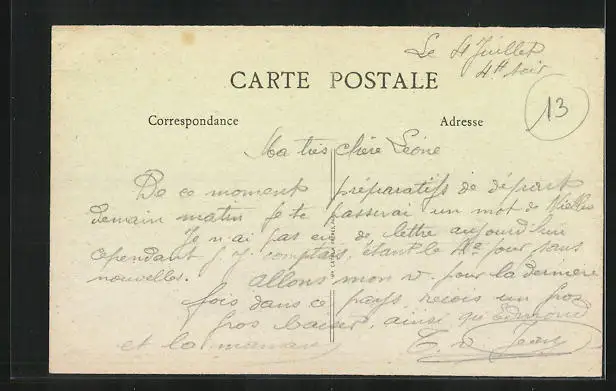 Le 4 Juillet
4h soir
CARTE POSTALE
13
Correspondance Adresse
Ma très chère Léone
De ce moment préparatifs de départ
demain matin je te passerai un mot de
Je n'ai pas eu de lettre aujourd'hui
cependant j'y comptais, étant le 4e jour sans
nouvelles. allons mon pour la dernière
fois dans ce pays, reçois un gros
gros baiser, ainsi qu'Edmond
et la maman
Jean